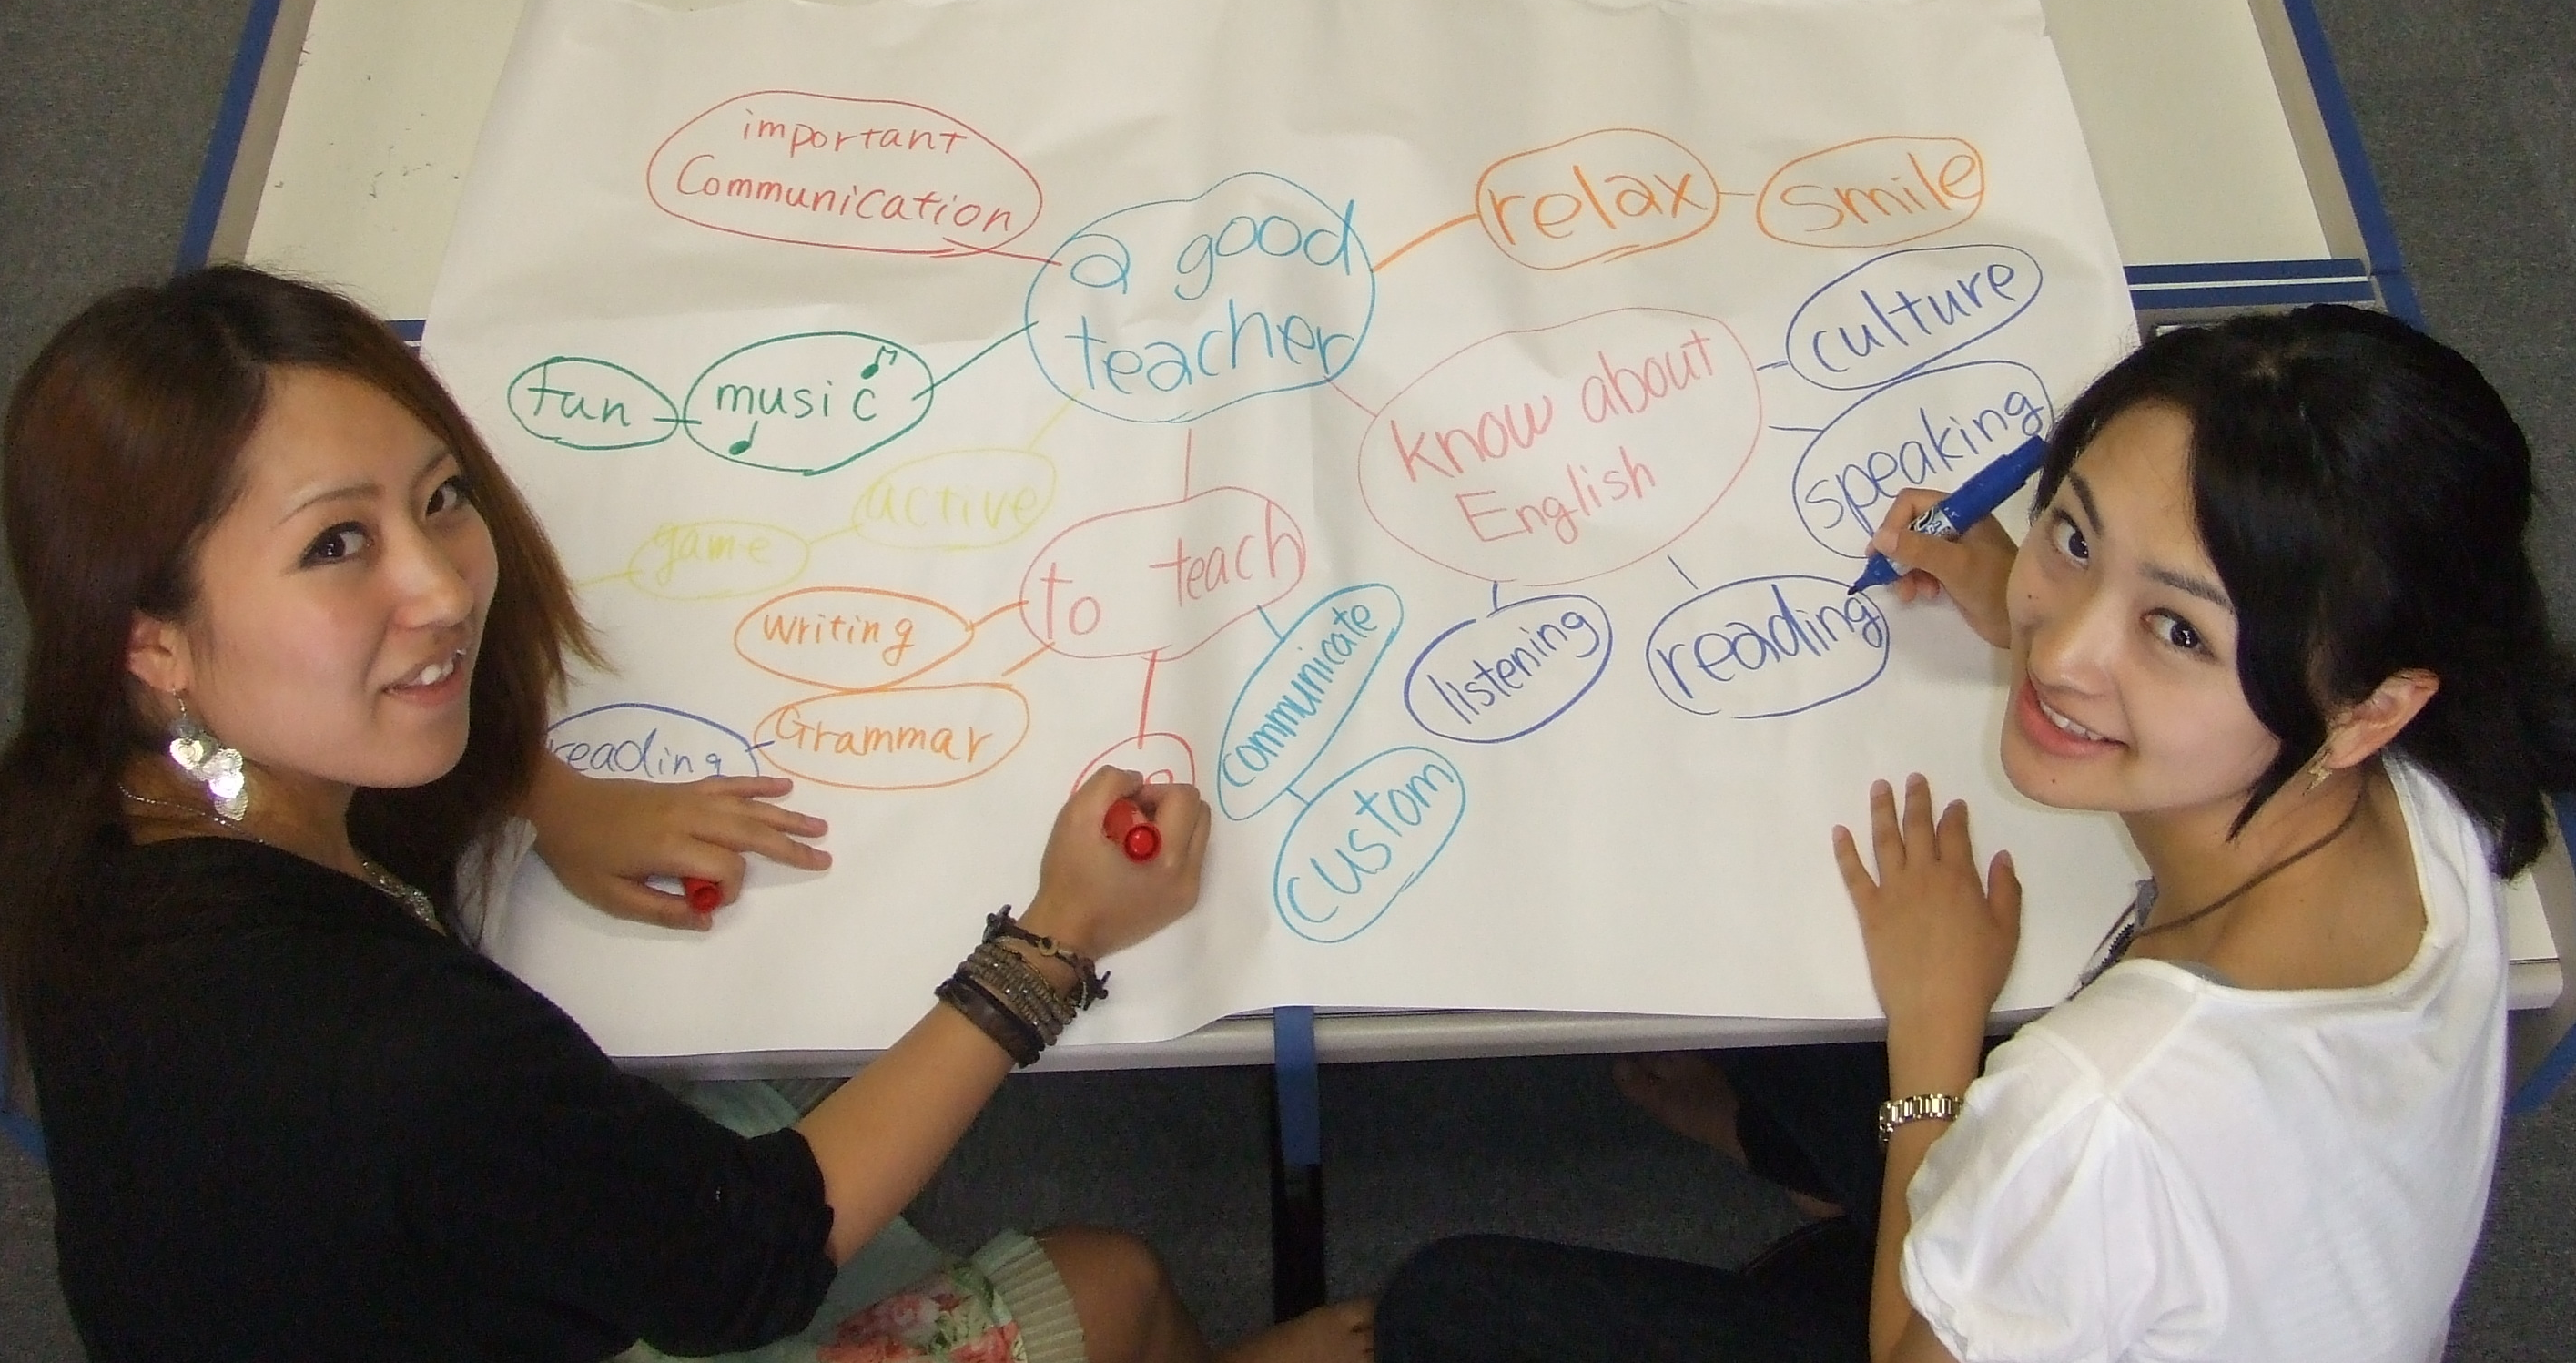 important
Communication
a good
teacher
relax
smile
culture
know about
English
speaking
fun
music
active
game
to teach
writing
communicate
listening
reading
Grammar
reading
custom